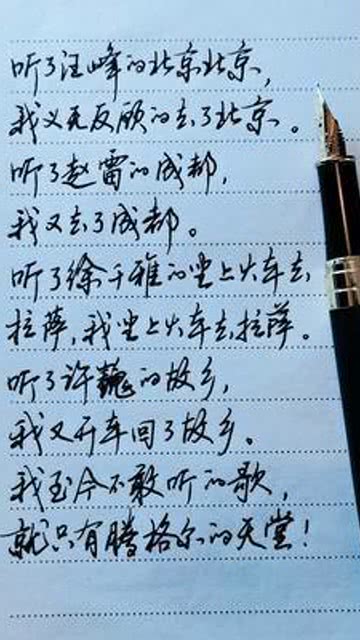 听了汪峰的北京北京，
我义无反顾的去了北京。
听了赵雷的成都，
我又去了成都。
听了徐千雅的坐上火车去
拉萨，我坐上火车去拉萨。
听了许巍的故乡，
我又开车回了故乡。
我至今不敢听的歌，
就只有腾格尔的天堂！